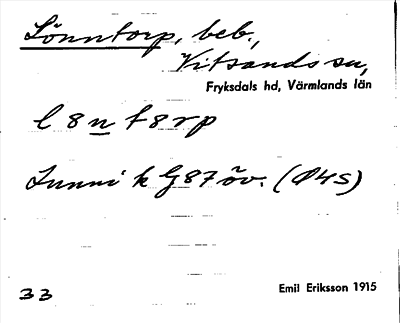 Lönntorp, beb.,
Vitsands sn,
Fryksdals hd, Värmlands län
l 8 n t 8 r p
Gunni k G 87 öv. (Ø4S)
33
Emil Eriksson 1915